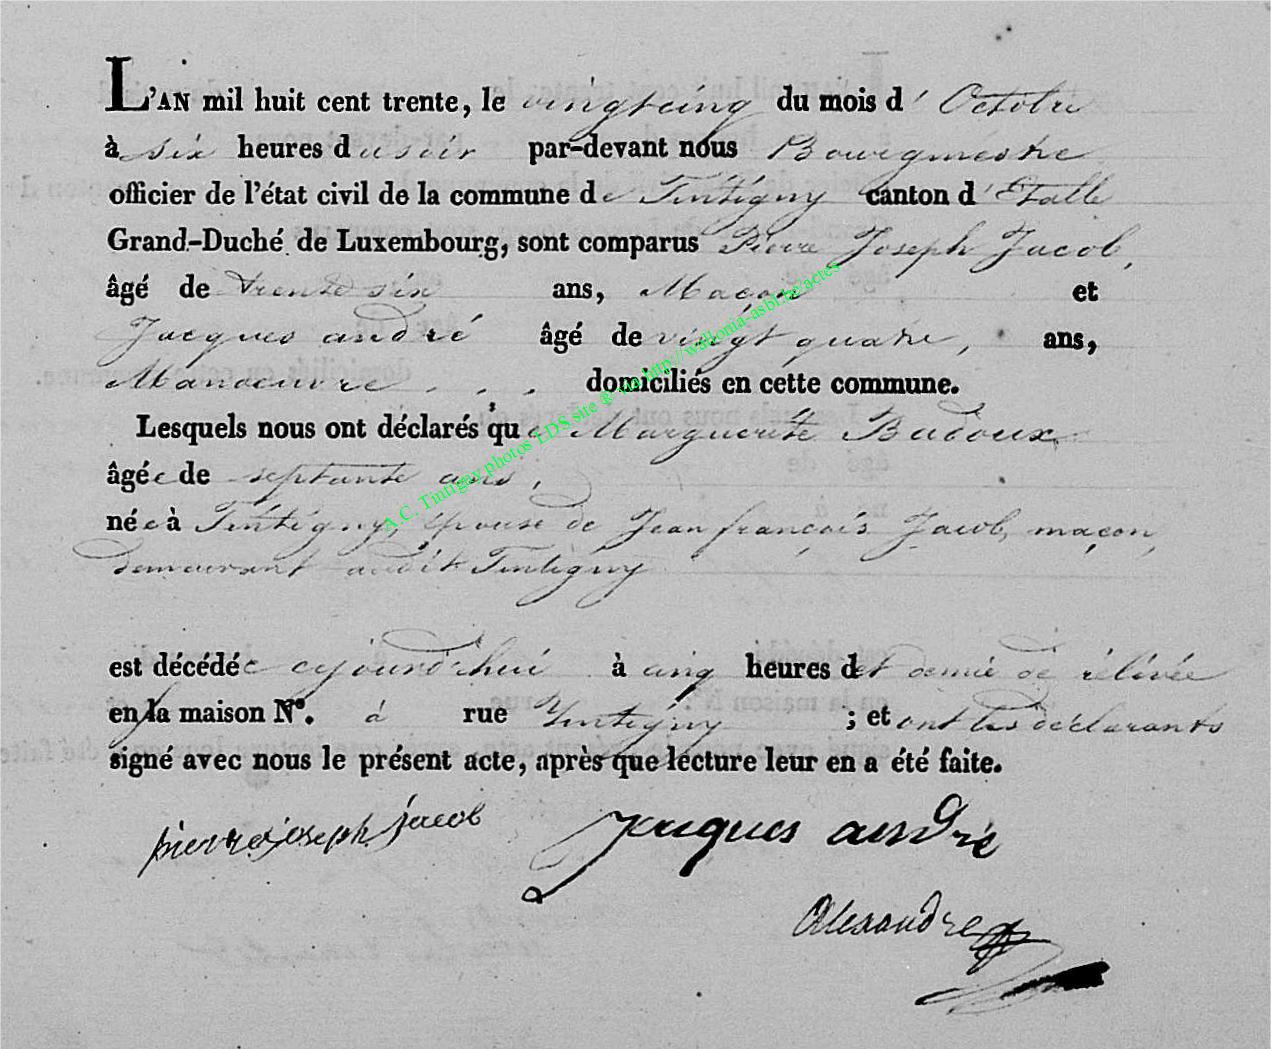 L'AN mil huit cent trente, le vingtcinq du mois d'Octobre
à six heures du soir par-devant nous Bourgmestre
officier de l'état civil de la commune de Tintigny canton d'Etalle
Grand-Duché de Luxembourg, sont comparus Pierre Joseph Jacob,
âgé de trente six ans, Maçon et
Jacques andré âgé de vingt quatre, ans,
Manoeuvre domiciliés en cette commune.
Lesquels nous ont déclarés que Marguerite Badoux
âgée de septante ans,
née à Tintigny, épouse de Jean françois Jacob, maçon,
demeurant audit Tintigny
est décédée cejourd'hui à cinq heures et demie de rélévée
en la maison N°. à rue Tintigny ; et ont les déclarants
signé avec nous le présent acte, après que lecture leur en a été faite.
pierre joseph jacob Jacques andré
Alexandre
A.C. Tintigny photos LDS site ® via http://wallonia-asbl.be/actes